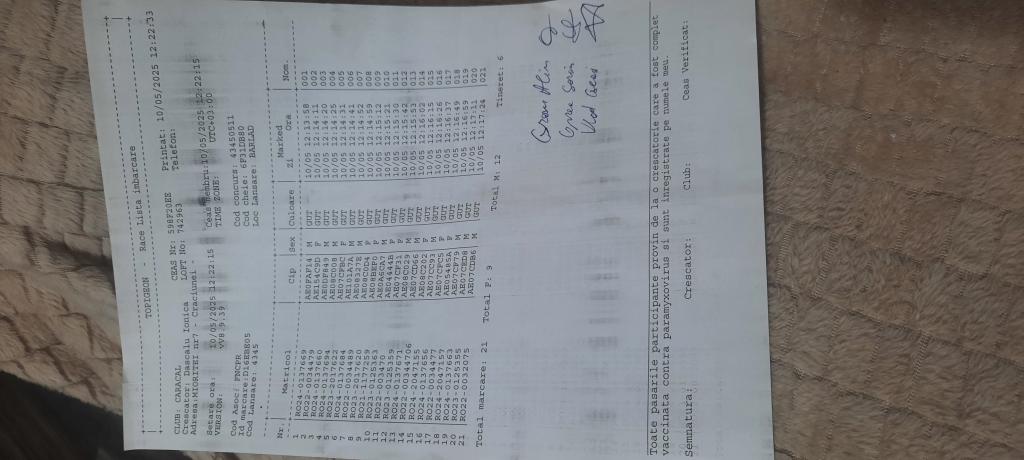 TOPIGEON - Race Lista imbarcare
CLUB: CARACAL CEAS Nr: 598F20EE Printat: 10/05/2025 12:22:33
Crescator: Dascalu Ionica LOFT No: 742963 Telefon:
Adresa:MIORITEI nr nr Craciunel
Setare ora: 10/05/2025 12:22:15 Ceas membru:10/05/2025 12:22:15
VERSION: VV8.9.35 TIME ZONE: UTC+03:00
Cod Asoc.: FNCPR Cod concurs: 43450511
Id marcare:D16EBE05 Cod cheie: 6F31DB80
Cod Lansare: 4345 Loc Lansare: BARLAD
Nr. Matricol Cip Sex Culoare Marked Zi Ora Nom.
1 RO24-0137669 AE0FAF14 M GUT 10/05 12:13:58 001
2 RO22-0034479 AE154C9D F GUT 10/05 12:14:11 002
3 RO24-0137660 AE0DF849 M GUT 10/05 12:14:20 003
4 RO23-0117574 AE08CD0B M GUT 10/05 12:14:25 004
5 RO23-2017622 AE07CFBC F GUT 10/05 12:14:31 005
6 RO24-0137684 AE151A7A M GUT 10/05 12:14:41 006
7 RO22-0034489 AE0B327E M GUT 10/05 12:14:52 007
8 RO23-2017620 AE08CCD4 F GUT 10/05 12:14:59 008
9 RO21-0177259 AE0BBEF0 F GUT 10/05 12:15:12 009
10 RO23-0125363 AE0A6C07 M GUT 10/05 12:15:21 010
11 RO22-0034470 AE04644B F GUT 10/05 12:15:30 011
12 RO23-0125359 AE07CD31 F GUT 10/05 12:15:42 012
13 RO24-0137671 AE08C829 M GUT 10/05 12:15:53 013
14 RO22-00344706 AE07CD66 M GUT 10/05 12:16:03 014
15 RO24-2047155 AE08C202 M GUT 10/05 12:16:15 015
16 RO24-0137656 AE07CC93 M GUT 10/05 12:16:26 016
17 RO22-0034477 AE07CFC5 F GUT 10/05 12:16:37 017
18 RO24-2047157 AE01453A F GUT 10/05 12:16:49 018
19 RO24-0137662 AE07CF79 F GUT 10/05 12:16:59 019
20 RO23-0125355 AE07CED8 M GUT 10/05 12:17:11 020
21 RO22-0032075 AE07CDB6 M GUT 10/05 12:17:24 021
Total marcare: 21 Total F: 9 Total M: 12 Tineret: 6
Toate pasarile participante provin de la o crescatorie care a fost complet
vaccinata contra paramyxovirus si sunt inregistrate pe numele meu.
Semnatura: Crescator: Club: Ceas Verificat: